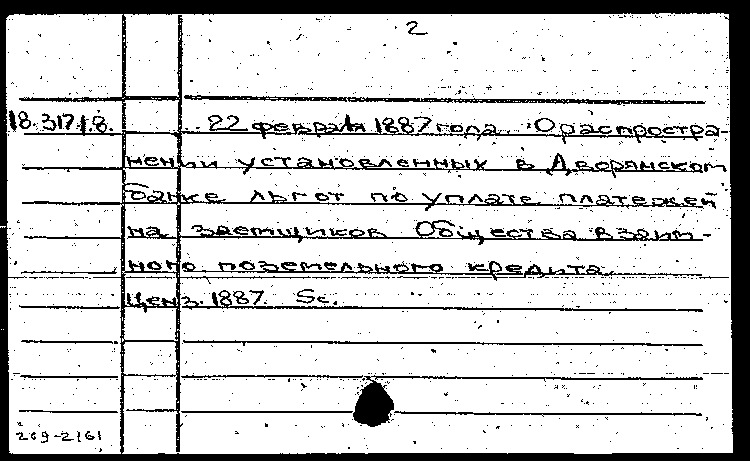 2
18.317.1.8. ... 22 февраля 1887 года. "О распростра-
нении установленных в Дворянском
банке льгот по уплате платежей
на заемщиков Общества взаим-
ного поземельного кредита.
Ценз. 1887. Sc.
209-2161